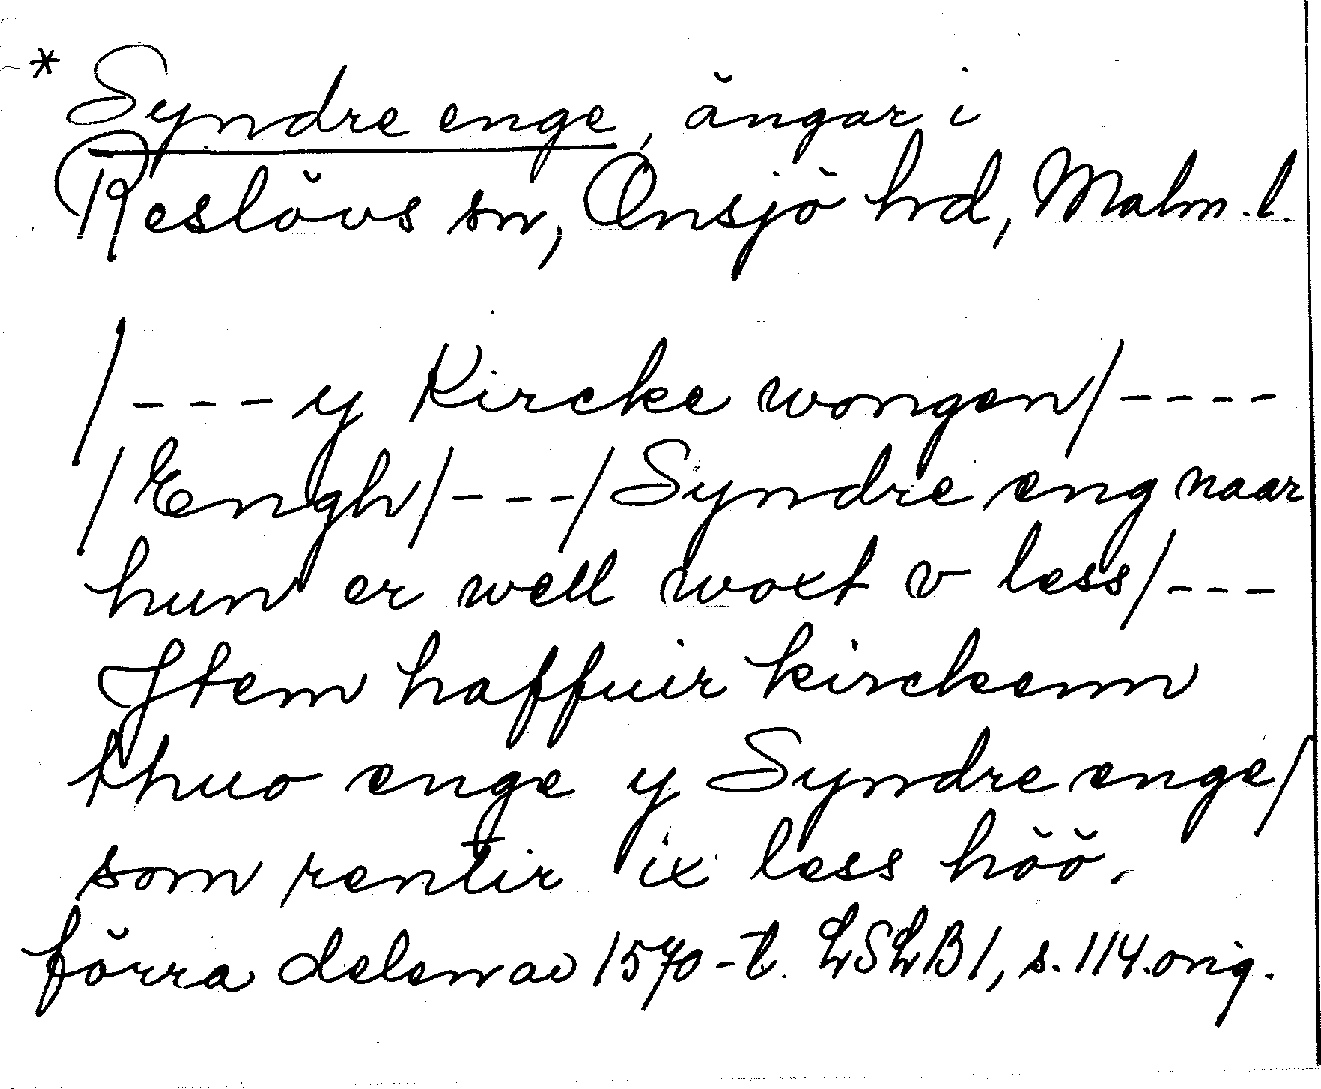 * Syndre enge, ängar i
Reslövs sn, Onsjö hrd, Malm. l.
/---y Kircke wongen/----
/Engh/---/Syndre eng naar
hun er well woxt v less/---
Jtem haffuir kirckenn
thuo enge y Syndre enge/
som rentir ix less höö.
förra delen av 1570-t. LSLB1, s. 114.orig.